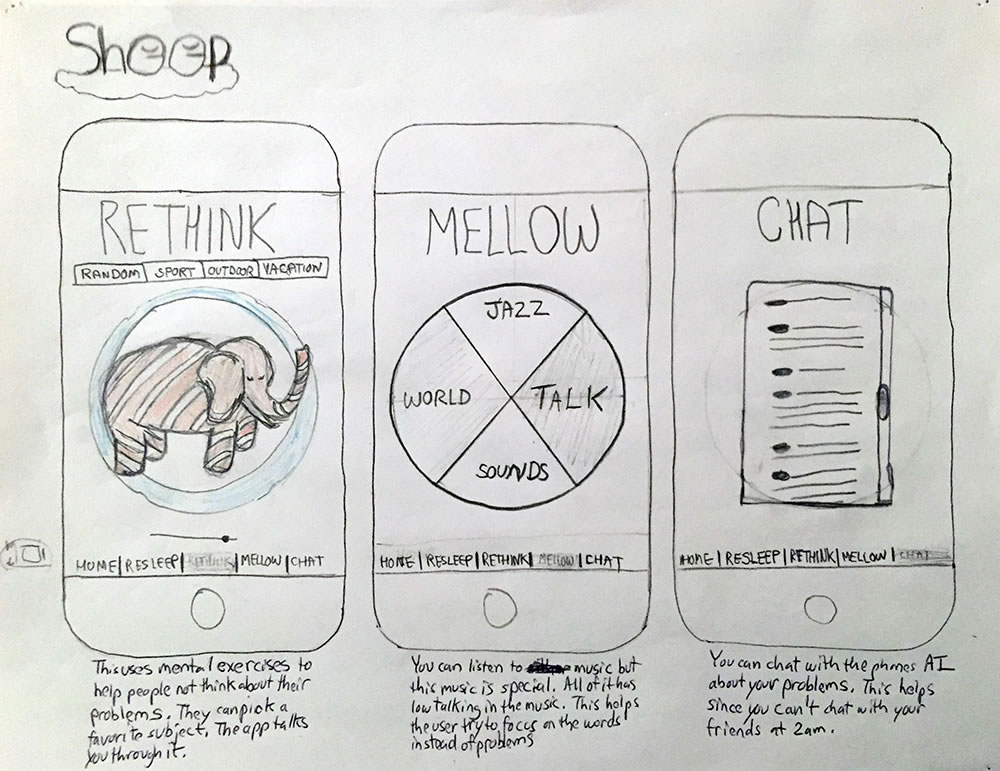 Shoop
RETHINK
RANDOM SPORT OUTDOOR VACATION
HOME | RESLEEP | RETHINK | MELLOW | CHAT
This uses mental exercises to
help people not think about their
problems. They can pick a
favorite subject. The app talks
you through it.
MELLOW
JAZZ
WORLD
TALK
SOUNDS
HOME | RESLEEP | RETHINK | MELLOW | CHAT
You can listen to music but
this music is special. All of it has
low talking in the music. This helps
the user try to focus on the words
instead of problems
CHAT
HOME | RESLEEP | RETHINK | MELLOW | CHAT
You can chat with the phones AI
about your problems. This helps
since you can't chat with your
friends at 2am.